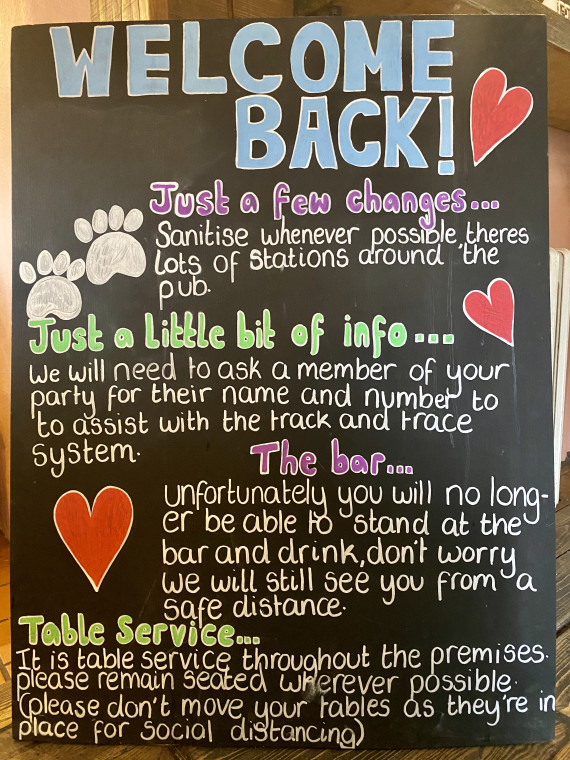 WELCOME
BACK!
Just a few changes...
Sanitise whenever possible, theres
lots of stations around the
pub.
Just a little bit of info...
We will need to ask a member of your
party for their name and number to
to assist with the track and trace
system.
The bar...
unfortunately you will no long-
er be able to stand at the
bar and drink, don't worry
we will still see you from a
safe distance.
Table Service...
It is table service throughout the premises.
please remain seated wherever possible.
(please don't move your tables as they're in
place for social distancing)